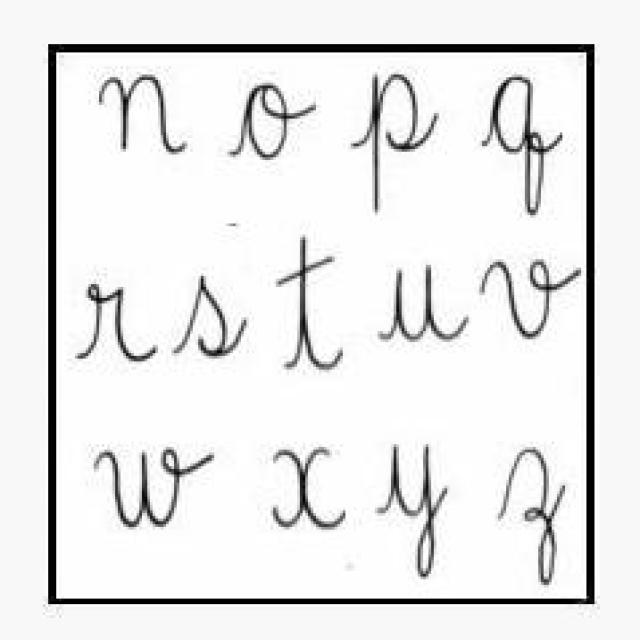 n o p q
r s t u v
w x y z